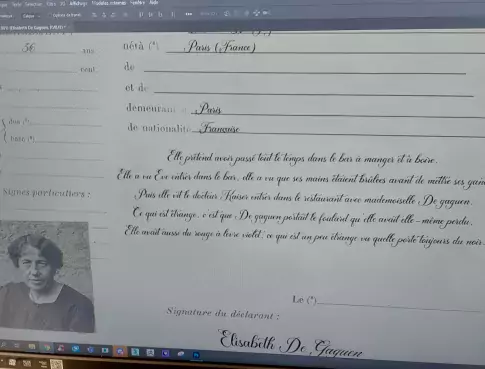 56 ans
né à (*) Paris (France)
cent.
de
et de
demeurant à Paris
de nationalité Française
Elle prétend avoir passé tout le temps dans le bar à manger et à boire.
Elle a vu Eva entrer dans le bar, elle a vu que ses mains étaient brûlées avant de mettre ses gan
Puis elle vit le docteur Kaiser entrer dans le restaurant avec mademoiselle De gaguen.
Ce qui est étrange, c'est que De gaguen portait le foulard qu'elle avait elle-même perdu.
Elle avait aussi du rouge à lèvre violet, ce qui est un peu étrange vu qu'elle porte toujours du noir.
Signes particuliers :
Le (*)
Signature du déclarant :
Elisabeth De Gaguen